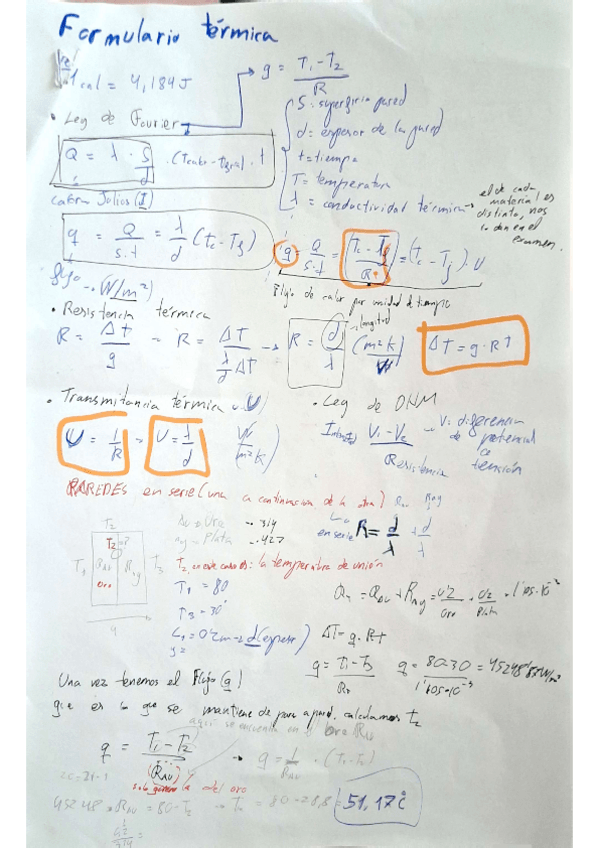 Formulario térmica
1 cal = 4,184 J
q = T1-T2 / R
• Ley de Fourier
S: superficie pared
d = espesor de la pared
t = tiempo
T = temperatura
λ = conductividad térmica → el de cada material es distinto, nos lo dan en el examen.
Q = λ · S/d · (T - T) · t
Julios (J)
q = Q/S·t = λ/d (Tc - Tf)
q = Q/S·t = Tc - Tf / R = (Tc - Tf) · U
flujo → (W/m²)
Flujo de calor por unidad de tiempo
• Resistencia térmica
R = ΔT/q → R = ΔT / λ/d ΔT → R = d/λ (m²K/W)
longitud
ΔT = q · RT
• Transmitancia térmica (U)
• Ley de OHM
U = 1/R → U = λ/d (W/m²K)
V1 - V2 / Resistencia
V: diferencia de potencial o tensión
PAREDES en serie (una a continuación de la otra)
Au → Oro → 314
Ag → Plata → 427
en serie R = d/λ + d/λ
T2
T1 RAu RAg T3
oro
T2, en este caso es: la temperatura de unión
T1 = 80
T3 = 30°
d (espesor)
ΔT = q · RT
q = T1 - T3 / RT
q = 80-30 / 1'105·10⁻³ = 45248'87 W/m²
Una vez tenemos el Flujo (q)
que es lo que se mantiene de pared a pared, calculamos T2
aquí se encuentra en el oro RAu
q = T1 - T2 / (RAu) → q = 1/RAu · (T1 - T2)
45248 · RAu = 80 - T2 → T2 = 80 - 28,8 = 51,17°C